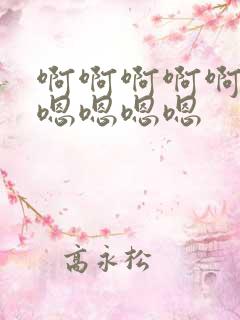 啊啊啊啊啊
嗯嗯嗯嗯
高永松